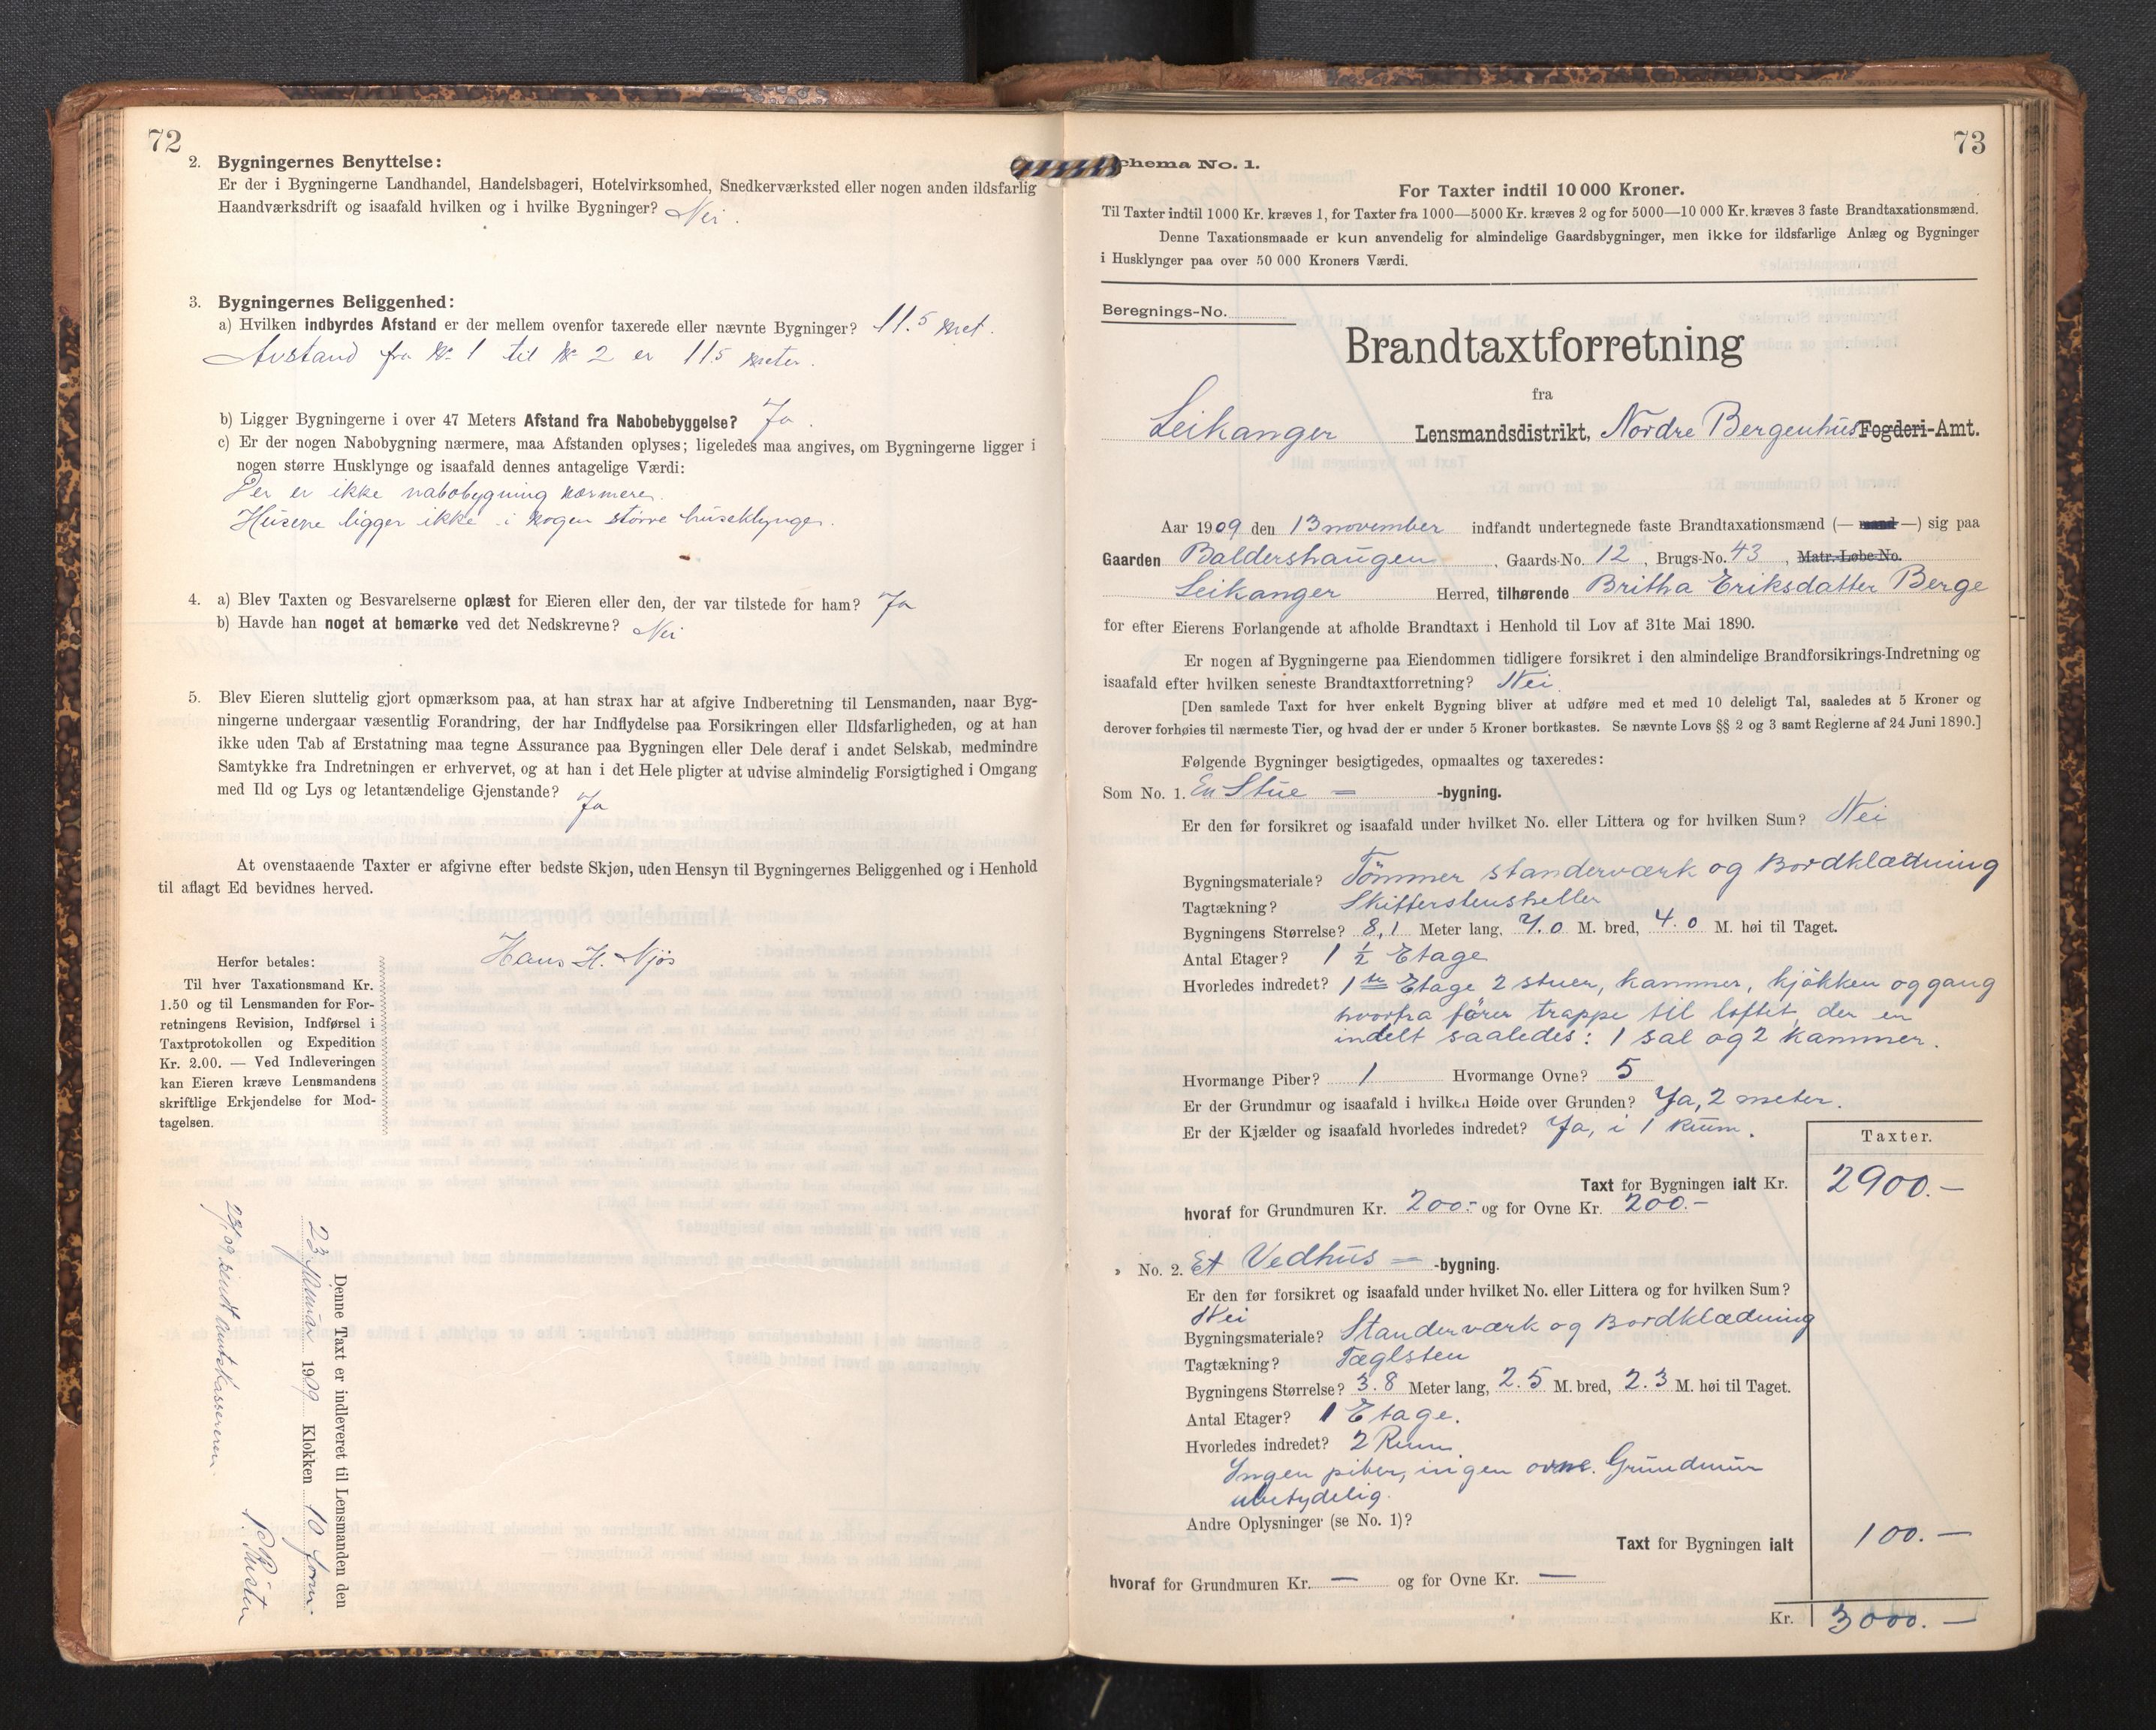 72
2. Bygningernes Benyttelse:
Er der i Bygningerne Landhandel, Handelsbageri, Hotelvirksomhed, Snedkerværksted eller nogen anden ildsfarlig
Haandværksdrift og isaafald hvilken og i hvilke Bygninger? Nei.
3. Bygningernes Beliggenhed:
a) Hvilken indbyrdes Afstand er der mellem ovenfor taxerede eller nævnte Bygninger? 11.5 met.
Avstand fra No 1 til No 2 er 11.5 meter.
b) Ligger Bygningerne i over 47 Meters Afstand fra Nabobebyggelse? Ja.
c) Er der nogen Nabobygning nærmere, maa Afstanden oplyses; ligeledes maa angives, om Bygningerne ligger i
nogen større Husklynge og isaafald dennes antagelige Værdi:
Der er ikke nabobygning nærmere.
Husene ligger ikke i nogen större huseklynger.
4. a) Blev Taxten og Besvarelserne oplæst for Eieren eller den, der var tilstede for ham? Ja
b) Havde han noget at bemærke ved det Nedskrevne? Nei
5. Blev Eieren sluttelig gjort opmærksom paa, at han strax har at afgive Indberetning til Lensmanden, naar Byg-
ningerne undergaar væsentlig Forandring, der har Indflydelse paa Forsikringen eller Ildsfarligheden, og at han
ikke uden Tab af Erstatning maa tegne Assurance paa Bygningen eller Dele deraf i andet Selskab, medmindre
Samtykke fra Indretningen er erhvervet, og at han i det Hele pligter at udvise almindelig Forsigtighed i Omgang
med Ild og Lys og letantændelige Gjenstande? Ja
At ovenstaaende Taxter er afgivne efter bedste Skjøn, uden Hensyn til Bygningernes Beliggenhed og i Henhold
til aflagt Ed bevidnes herved.
Hans H. Njøs
Herfor betales:
Til hver Taxationsmand Kr.
1.50 og til Lensmanden for For-
retningens Revision, Indførsel i
Taxtprotokollen og Expedition
Kr. 2.00. — Ved Indleveringen
kan Eieren kræve Lensmandens
skriftlige Erkjendelse for Mod-
tagelsen.
Denne Taxt er indleveret til Lensmanden den
23 1909 Klokken 10 form.
23/ 09 sendt amtskassereren.
73
chema No. 1.
For Taxter indtil 10 000 Kroner.
Til Taxter indtil 1000 Kr. kræves 1, for Taxter fra 1000—5000 Kr. kræves 2 og for 5000—10 000 Kr. kræves 3 faste Brandtaxationsmænd.
Denne Taxationsmaade er kun anvendelig for almindelige Gaardsbygninger, men ikke for ildsfarlige Anlæg og Bygninger
i Husklynger paa over 50 000 Kroners Værdi.
Beregnings-No.
Brandtaxtforretning
fra
Leikanger Lensmandsdistrikt, Nordre Bergenhus Fogderi-Amt.
Aar 1909 den 13 november indfandt undertegnede faste Brandtaxationsmænd (— mand —) sig paa
Gaarden Baldershaugen, Gaards-No. 12, Brugs-No. 43, Matr.-Løbe-No.
Leikanger Herred, tilhørende Britha Eriksdatter Berge
for efter Eierens Forlangende at afholde Brandtaxt i Henhold til Lov af 31te Mai 1890.
Er nogen af Bygningerne paa Eiendommen tidligere forsikret i den almindelige Brandforsikrings-Indretning og
isaafald efter hvilken seneste Brandtaxtforretning? Nei.
[Den samlede Taxt for hver enkelt Bygning bliver at udføre med et med 10 deleligt Tal, saaledes at 5 Kroner og
derover forhøies til nærmeste Tier, og hvad der er under 5 Kroner bortkastes. Se nævnte Lovs §§ 2 og 3 samt Reglerne af 24 Juni 1890.]
Følgende Bygninger besigtigedes, opmaaltes og taxeredes:
Som No. 1. En Stue = -bygning.
Er den før forsikret og isaafald under hvilket No. eller Littera og for hvilken Sum? Nei
Bygningsmateriale? Tömmer standerværk og Bordklædning
Tagtækning? Skifferstensheller
Bygningens Størrelse? 8,1 Meter lang, 7.0 M. bred, 4.0 M. høi til Taget.
Antal Etager? 1 ½ Etage
Hvorledes indredet? 1ste Etage 2 stuer, kammer, kjökken og gang
hvorfra förer trappe til loftet, der er
indelt saaledes: 1 sal og 2 kammer.
Hvormange Piber? 1 Hvormange Ovne? 5
Er der Grundmur og isaafald i hvilken Høide over Grunden? Ja, 2 meter.
Er der Kjælder og isaafald hvorledes indredet? Ja, i 1 Rum.
Taxter.
Taxt for Bygningen ialt Kr. 2900.—
hvoraf for Grundmuren Kr. 200.- og for Ovne Kr. 200.-
» No. 2. Et Vedhus = -bygning.
Er den før forsikret og isaafald under hvilket No. eller Littera og for hvilken Sum?
Nei
Bygningsmateriale? Standerværk og Bordklædning
Tagtækning? Tæglsten
Bygningens Størrelse? 3.8 Meter lang, 2.5 M. bred, 2.3 M. høi til Taget.
Antal Etager? 1 Etage.
Hvorledes indredet? 2 Rum.
Ingen piber, ingen ovne. Grundmur
ubetydelig.
Andre Oplysninger (se No. 1)?
Taxt for Bygningen ialt 100.—
hvoraf for Grundmuren Kr. — og for Ovne Kr. —
Kr. 3000.—